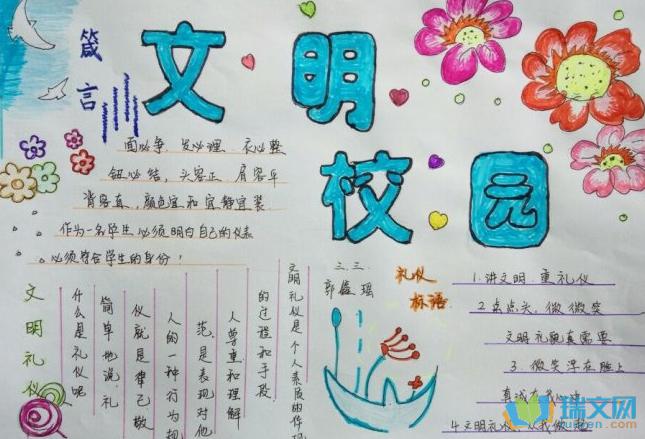 箴言
文明
校园
面必争、发必理、衣必整
钮必结,头容正,肩容平
背容直,颜色宜和宜静宜装
作为一名学生必须明白自己的仪表
必须符合学生的身份!
文明礼仪
什么是礼仪呢
简单地说,礼
仪就是律己敬
人的一种行为规
范,是表现对他
人尊重和理解
的过程和手段
文明礼仪是个人素质的体现
三.三
郭
礼仪
标语
1.讲文明 重礼仪
2.点点头,微微笑
文明礼貌真需要
3.微笑浮在脸上
真诚在
4.文明礼仪,从我做起
瑞文网